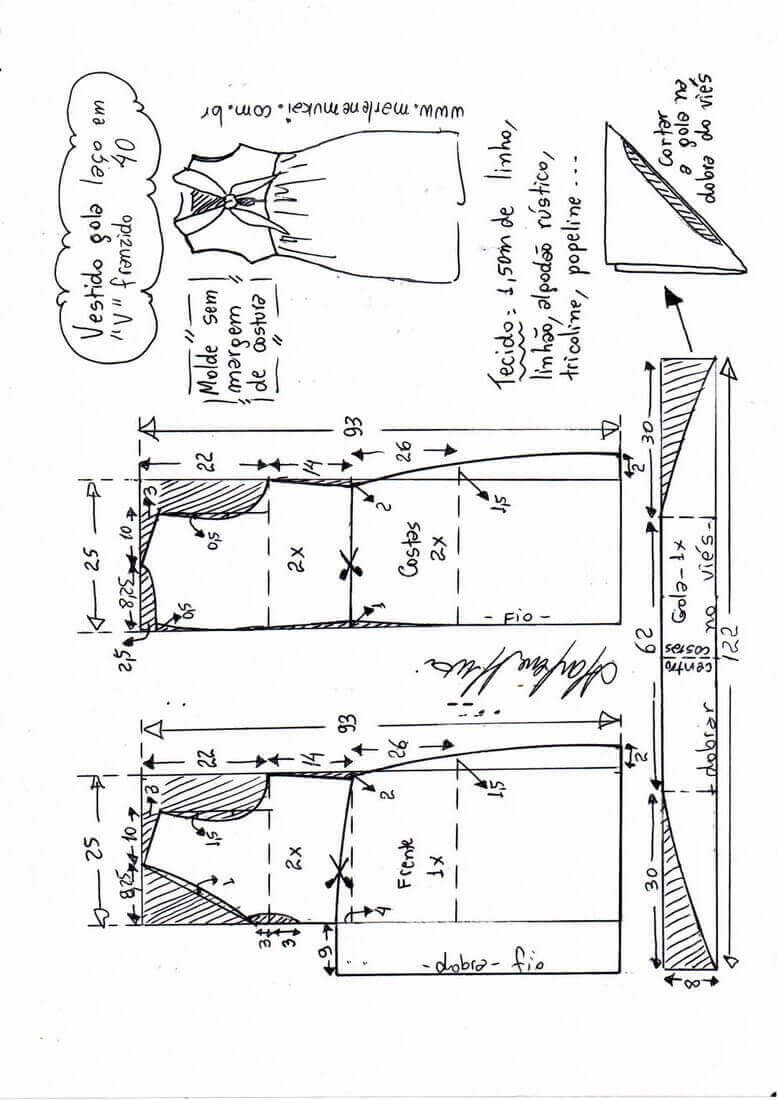 Vestido gola laço em
"V" franzido 40
www.marlenemukai.com.br
Molde sem
margem
de costura
Tecido = 1,50m de linho,
linhão, algodão rústico,
tricoline, popeline...
Cortar
a gola na
dobra do viés
25
8,25
10
3
2,5
0,5
0,5
22
14
26
93
2x
1
2
1,5
2
Costas
2x
- Fio -
25
8,25
10
3
1
1,5
22
14
26
93
3
3
2x
4
2
1,5
2
9
Frente
1x
- dobra - fio
30
62
30
8
122
dobrar
centro
costas
Gola - 1x
no viés -